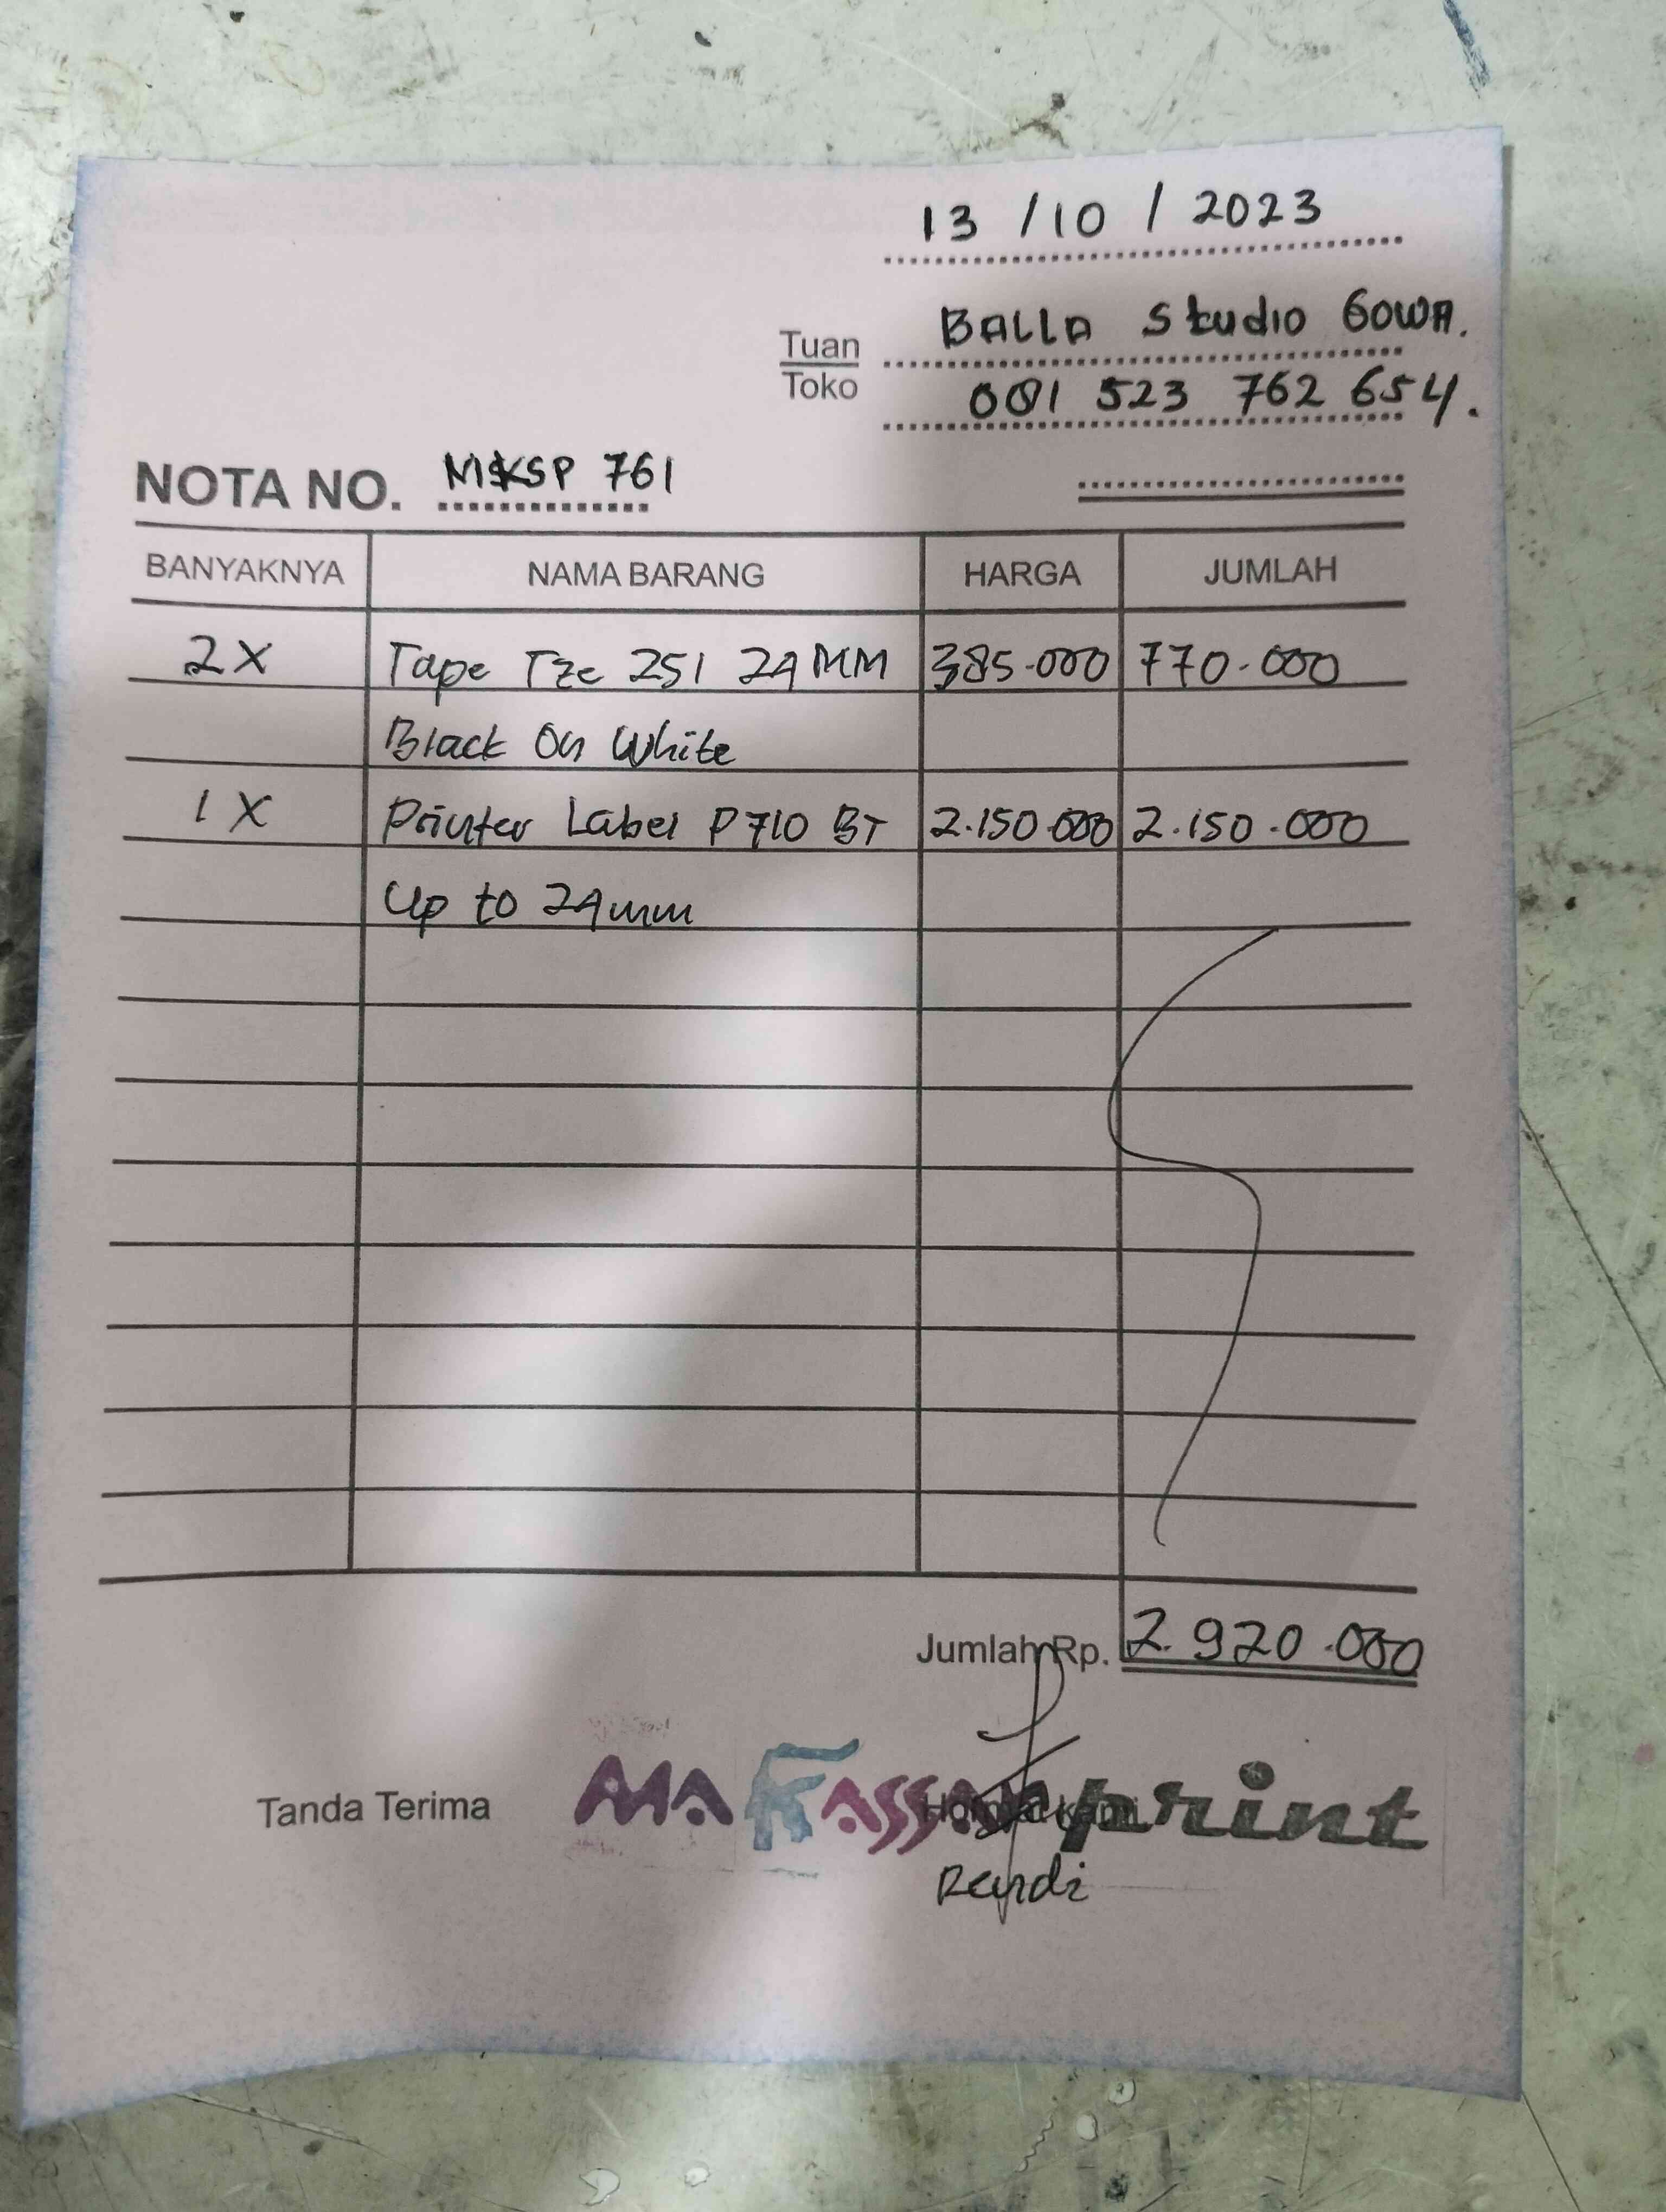 13 / 10 / 2023
Tuan BALLA Studio GOWA.
Toko 081 523 762 654.
NOTA NO. MKSP 761
BANYAKNYA NAMA BARANG HARGA JUMLAH
2X Tape Tze 251 24 MM 385.000 770.000
Black On White
1X Printer Label P710 BT 2.150.000 2.150.000
Up to 24mm
Jumlah Rp. 2.920.000
Tanda Terima Hormat kami
MAKASSAR print
Rendi